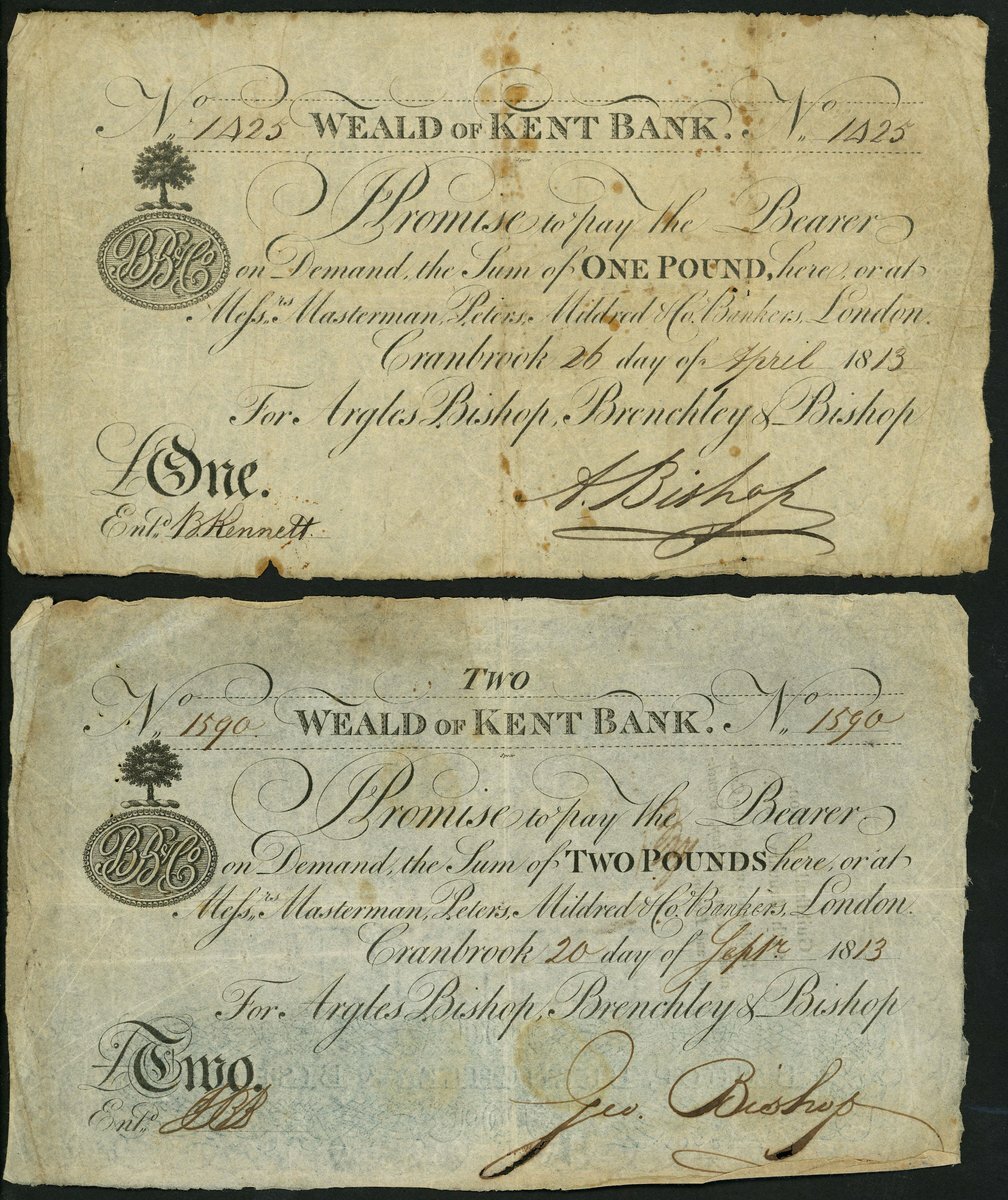 No. 1425 WEALD OF KENT BANK. No. 1425
I Promise to pay the Bearer
BB&Co
on Demand, the Sum of ONE POUND, here, or at
Messrs. Masterman, Peters, Mildred & Co. Bankers, London.
Cranbrook 26 day of April 1813
For Argles Bishop, Brenchley & Bishop
£One.
A. Bishop
Entd. B. Kennett
TWO
No. 1590 WEALD OF KENT BANK. No. 1590
I Promise to pay the Bearer
BB&Co
on Demand, the Sum of TWO POUNDS here, or at
Messrs. Masterman, Peters, Mildred & Co. Bankers, London.
Cranbrook 20 day of Septr 1813
For Argles Bishop, Brenchley & Bishop
£Two.
Geo. Bishop
Entd.